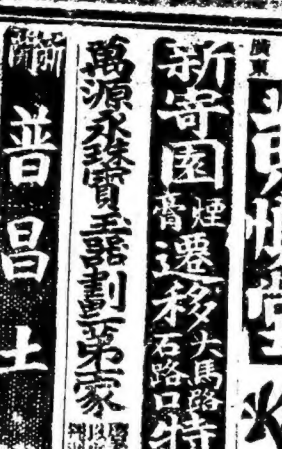 廣東
黃慎堂
新寄園煙膏遷移大馬路石路口特
萬源永珠寶玉器劃一第一家
新開
普昌土